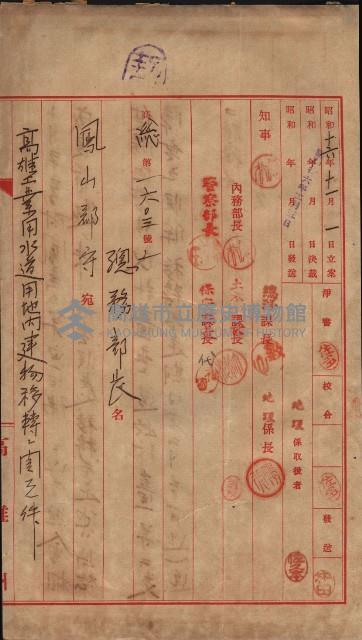 昭和十六年十一月一日立案
昭和 年 月 日決裁
昭和 年 月 日發送
淨書
校合
發送
地理係取扱者
知事
內務部長
警察部長
總務課長
土 課長
保 課長 代
地理係長
總第一六〇三號ノ
總務部長名
鳳山郡守宛
高雄工業用水道用地內建物移轉ニ關スル件
高雄州
高雄市立歷史博物館